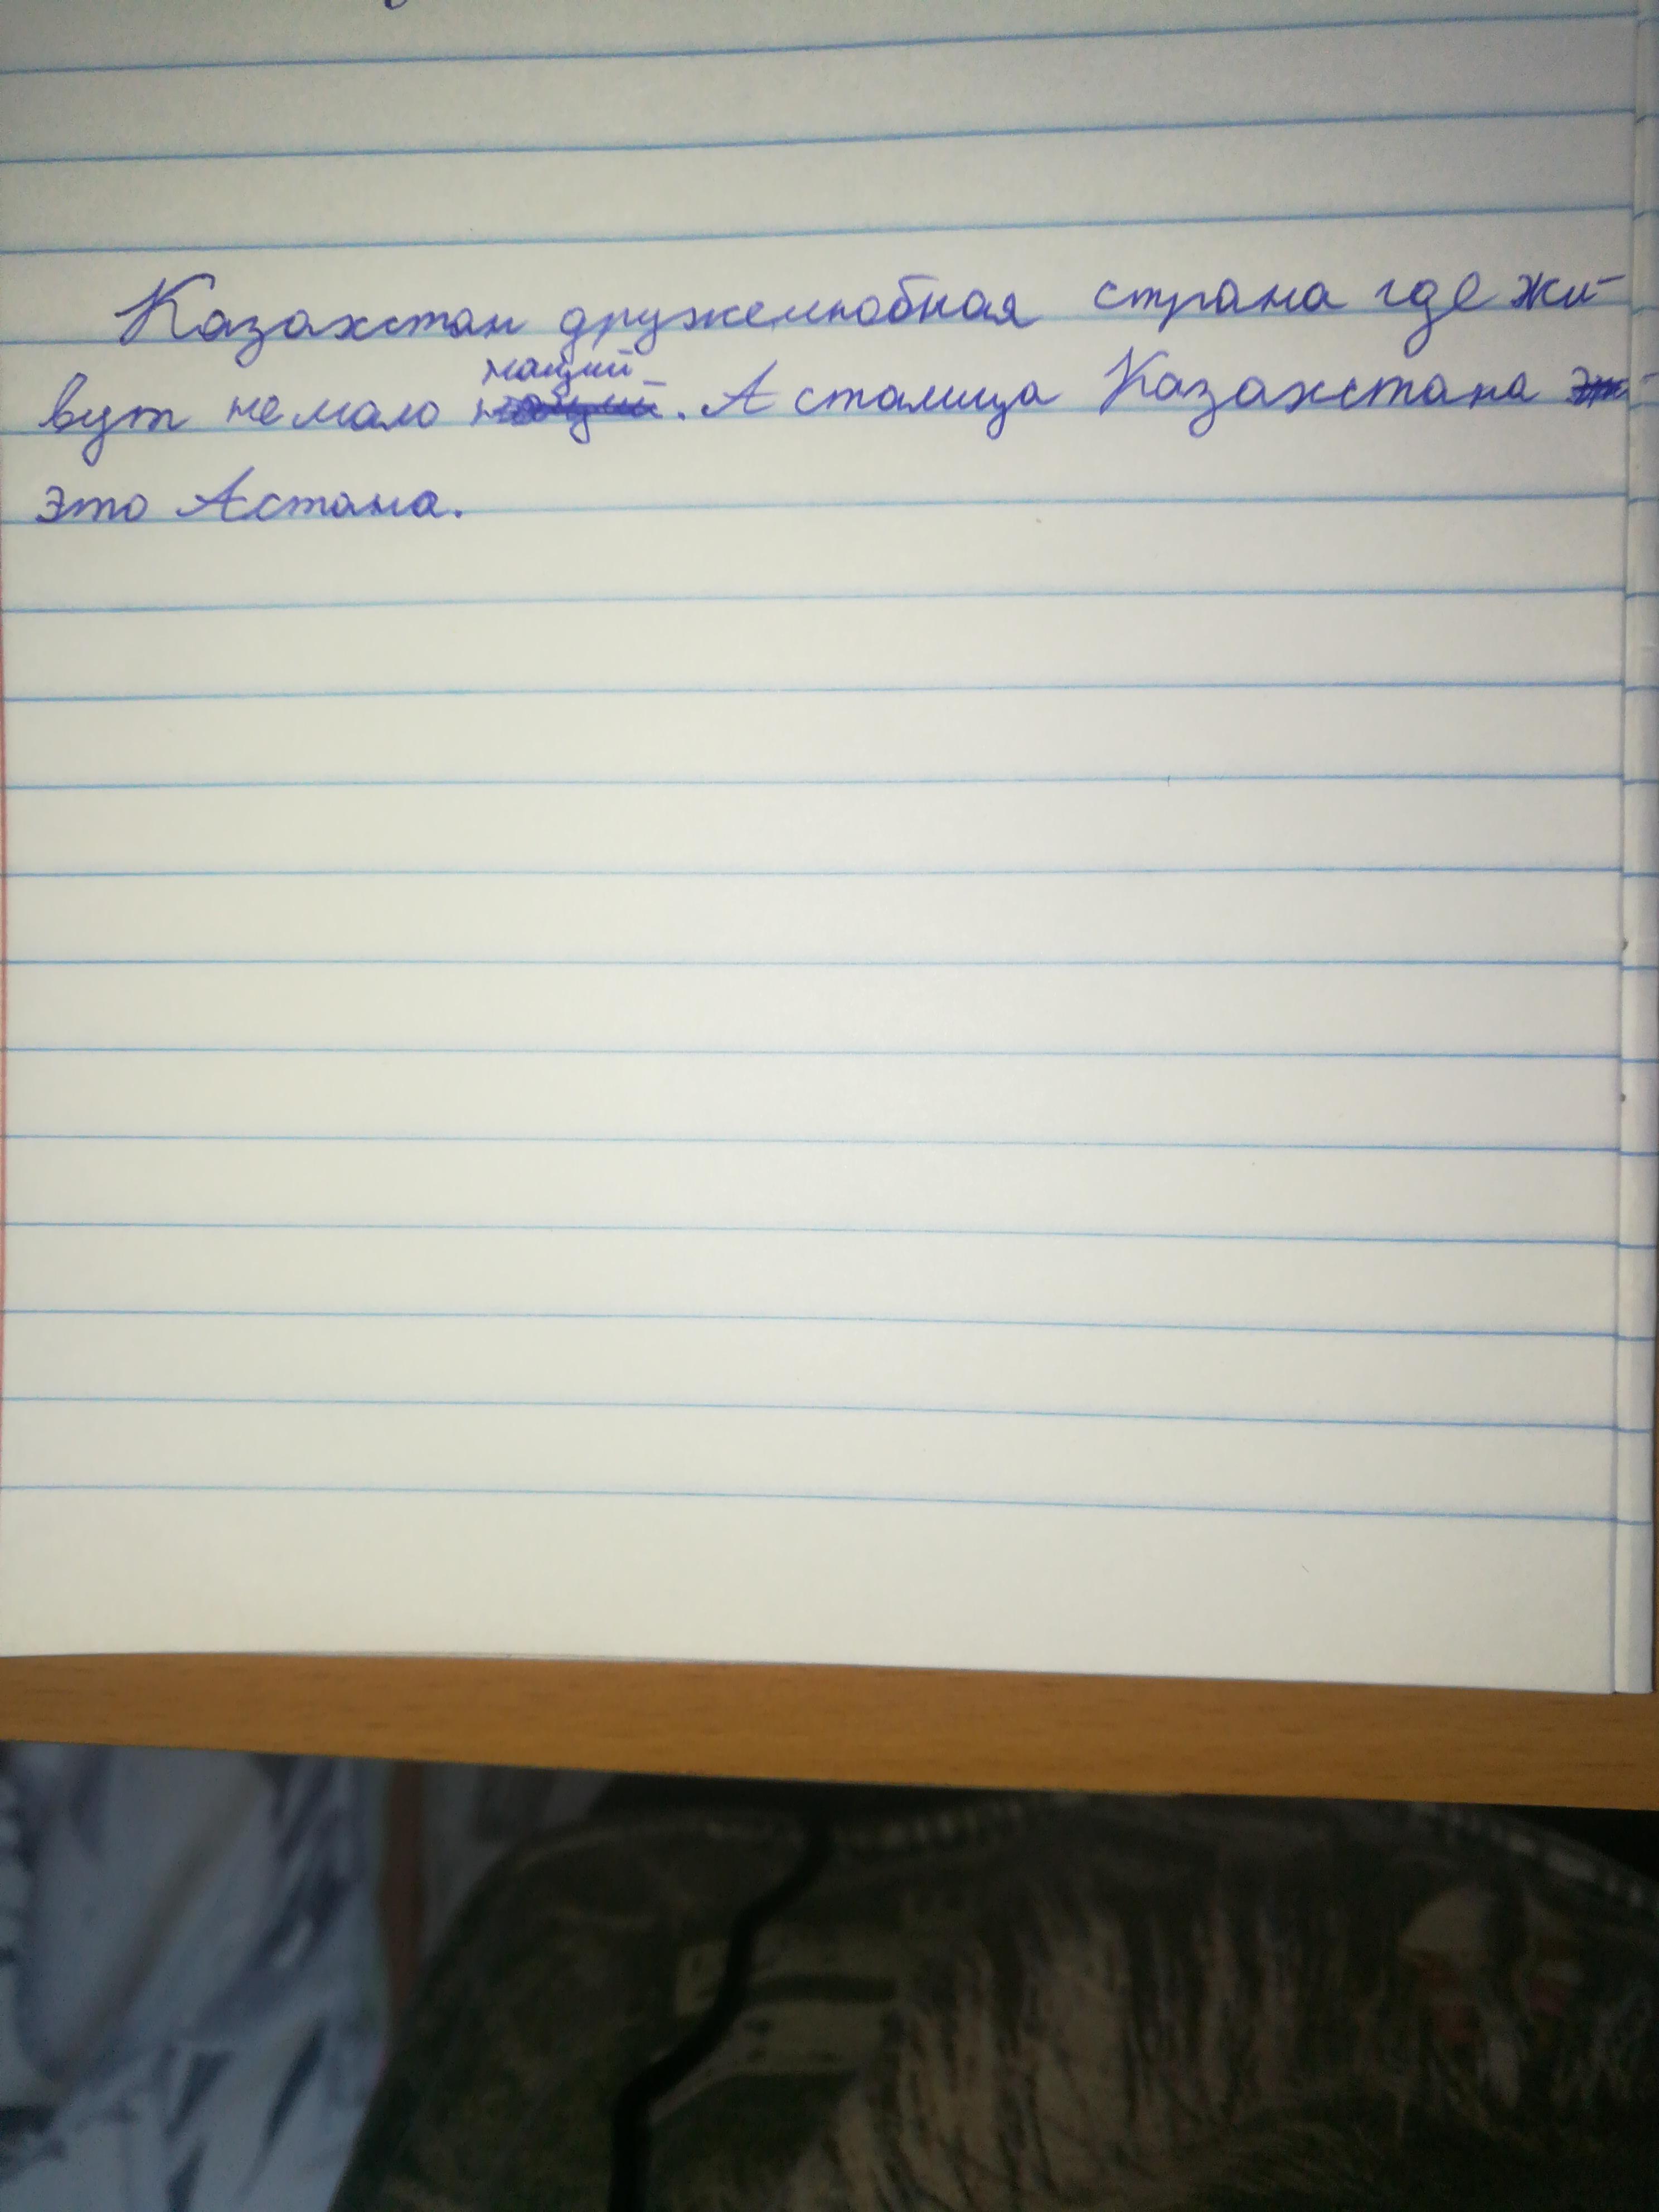 Казахстан дружелюбная страна где жи-
вут немало наций. А сталица Казахстана
это Астана.